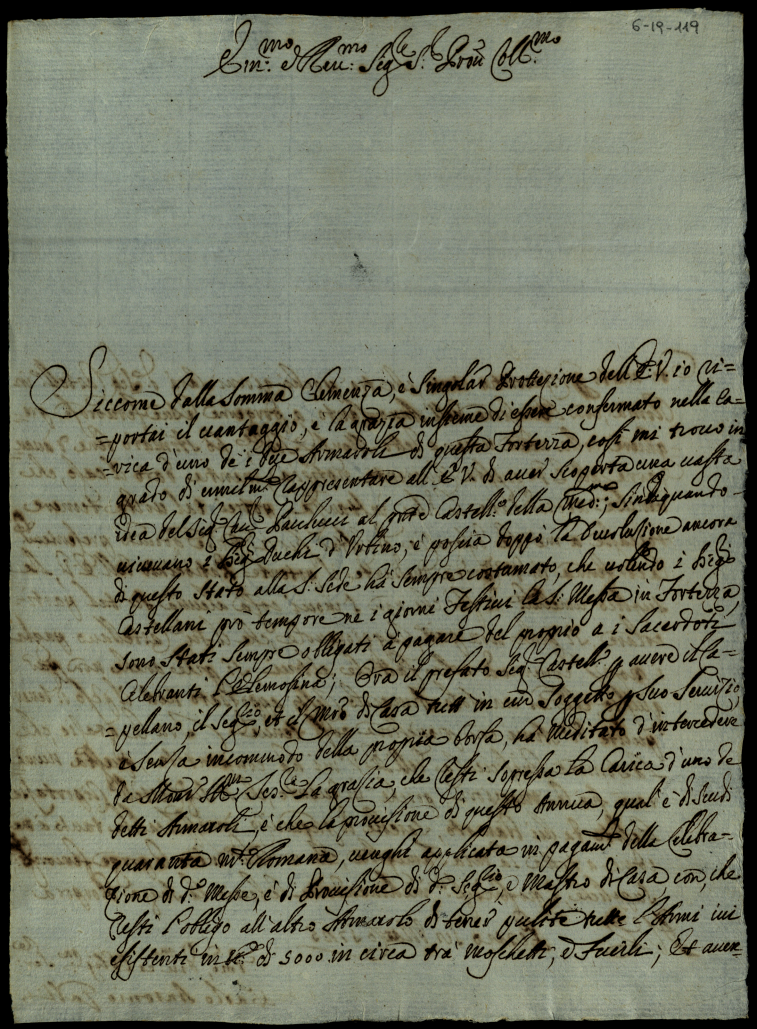 6-19-119
Em.mo e Reu.mo Sig.re S.r Pron Coll.mo
Siccome dalla Somma Clemenza, è Singolar Prottezione dell'E.V. io ri=
=portai il uantaggio, è la grazia insieme di essere confermato nella Ca=
=rica d'uno de i due Armaroli di questa Fortezza, così mi trouo in
grado di umilm.te rappresentare all'E.V. di auer scoperta una uasta
idea del Sig.r Paolucci al pnte Castell.o della med.ma; Sin da quando
uiueuano i Sig.ri Duchi d'Urbino, è poscia doppo la Deuoluzione ancora
di questo Stato alla S. Sede hà sempre costumato, che uolendo i Sig.ri
Castellani prò tempore ne i giorni Festiui la S. Messa in Fortezza,
sono stati sempre obligati à pagare del proprio a i Sacerdoti
Celebranti l'Elemosina; Ora il prefato Sig.r Castell.o p auere il Ca=
=pellano, il Seg.rio, et il Mro di Casa tutt'in un Soggetto p suo Seruizio,
è senza incommodo della propria borsa, hà meditato d'intercedere
da Mons.r Ill.mo Tes.re la grazia, che resti sopressa la Carica d'uno de
detti Armaroli, è che la prouisione di questo Annua, qual'è di Scudi
quaranta m.ta Romana, uenghi applicata in pagam.to della Celebra=
zione di d.e Messe, è di Prouisione di d.o Seg.rio, e Mastro di Casa, con, che
resti l'obligo all'altro Armarolo di tener pulite tutte l'Armi iui
esistenti in n.o di 5000 in circa trà moschetti, è Fucili; Et auen=